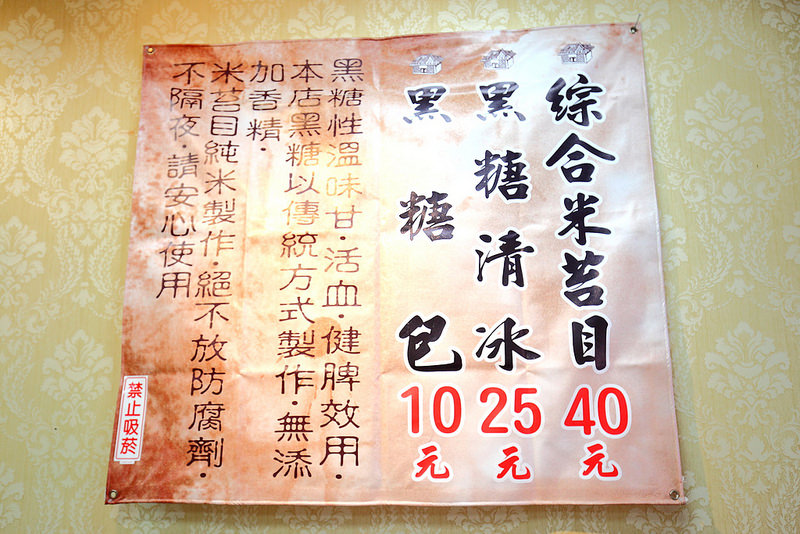 綜合米苔目40元
黑糖清冰25元
黑糖包10元
黑糖性溫味甘．活血．健脾效用．
本店黑糖以傳統方式製作．無添
加香精．
米苔目純米製作．絕不放防腐劑．
不隔夜．請安心使用
禁止吸菸